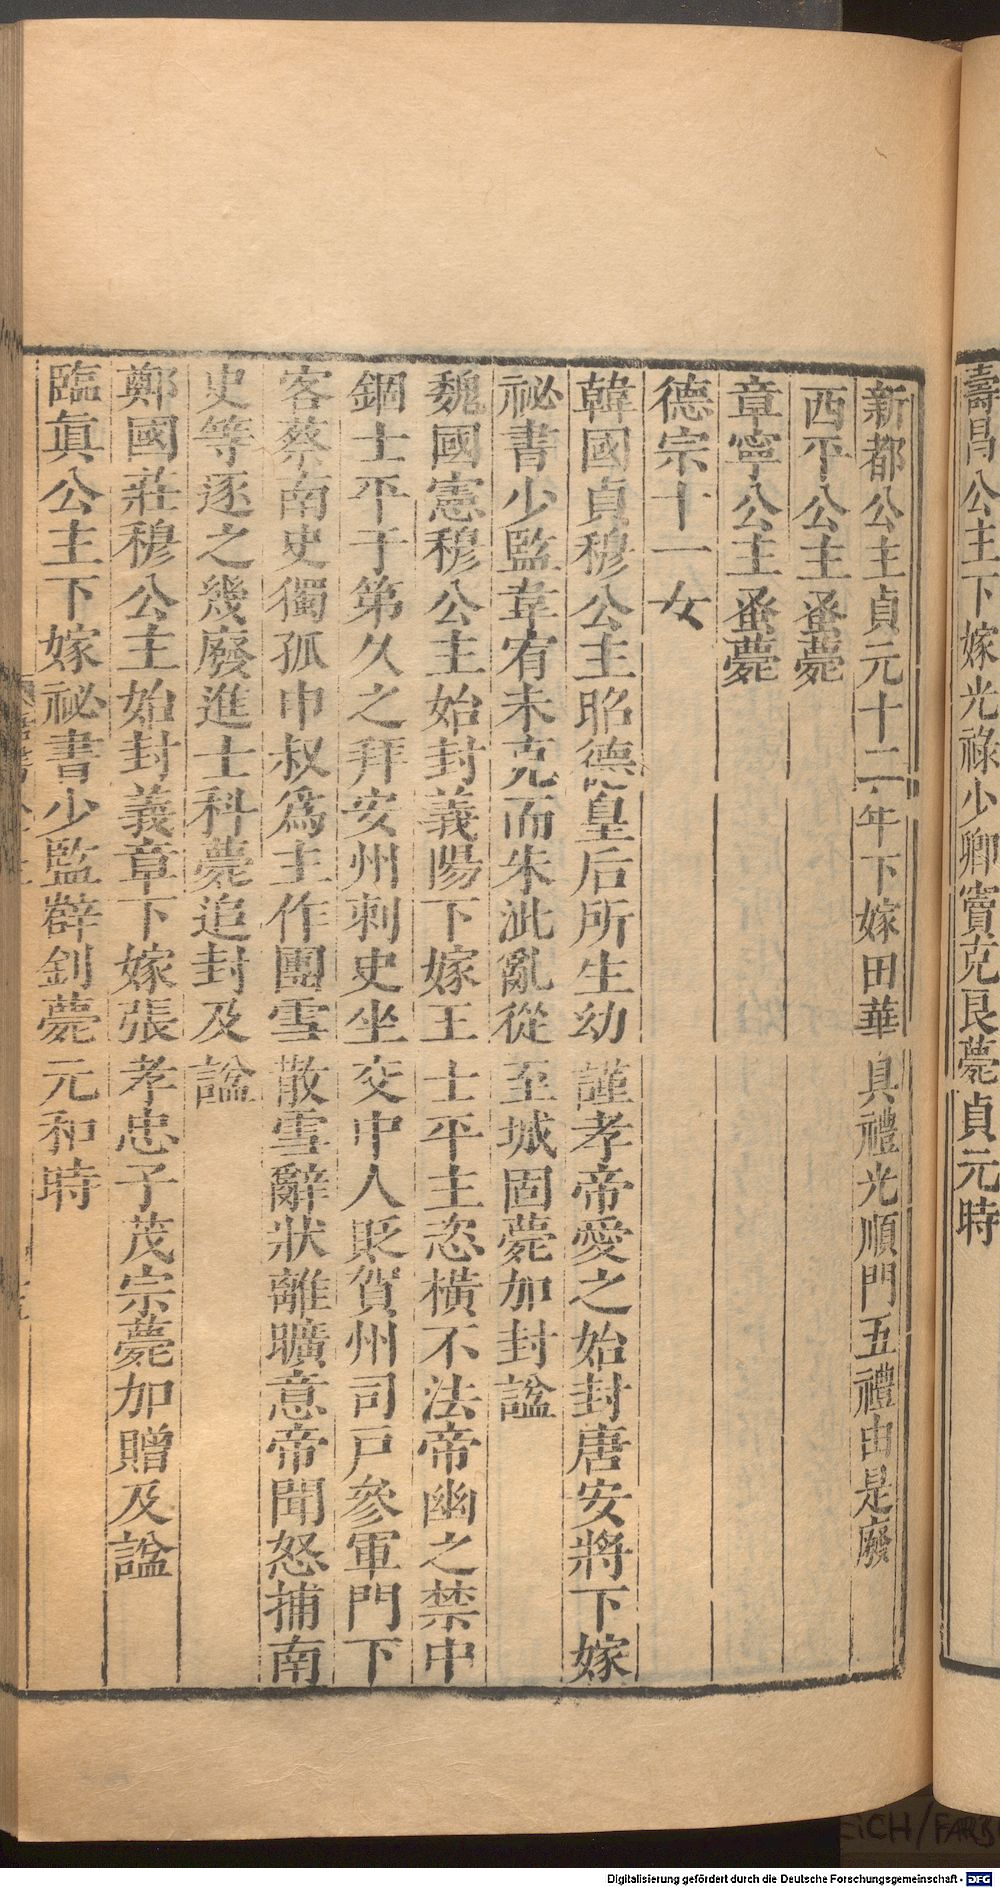 壽昌公主下嫁光祿少卿竇克良薨貞元時
新都公主貞元十二年下嫁田華具禮光順門五禮由是廢
西平公主蚤薨
章寧公主蚤薨
德宗十一女
韓國貞穆公主昭德皇后所生幼謹孝帝愛之始封唐安將下嫁
祕書少監韋宥未克而朱泚亂從至城固薨加封諡
魏國憲穆公主始封義陽下嫁王士平主恣橫不法帝幽之禁中
錮士平于第久之拜安州刺史坐交中人貶賀州司戶參軍門下
客蔡南史獨孤申叔爲主作團雪散雪辭狀離曠意帝聞怒捕南
史等逐之幾廢進士科薨追封及諡
鄭國莊穆公主始封義章下嫁張孝忠子茂宗薨加贈及諡
臨眞公主下嫁祕書少監薛釗薨元和時
EICH/FARB
Digitalisierung gefördert durch die Deutsche Forschungsgemeinschaft - DFG